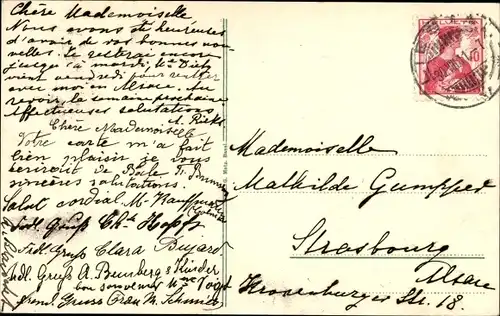 Chère Mademoiselle
Nous avons été heureuses
d'avoir de vos bonnes nou-
velles. Je resterai encore
jusqu'à mardi, Mme
vient vendredi pour rentrer
avec moi en Alsace. Au
revoir, la semaine prochaine
Affectueuses salutations
A.
Chère Mademoiselle
Votre carte m'a fait
bien plaisir je vous
écrirait de Bâle
sincères salutations.
Salut cordial M. Kauffmann
Frdl. Gruß Hopff
Frdl. Gruss Clara
Frdl. Gruss A. & Kinder
bon souvenir Mme Vogt
freundl. Gruss Frau M. Schmid
Mademoiselle
Mathilde Gumpper
Strasbourg
Alsace
Kronenburger Str. 18.
HELVETIA
10